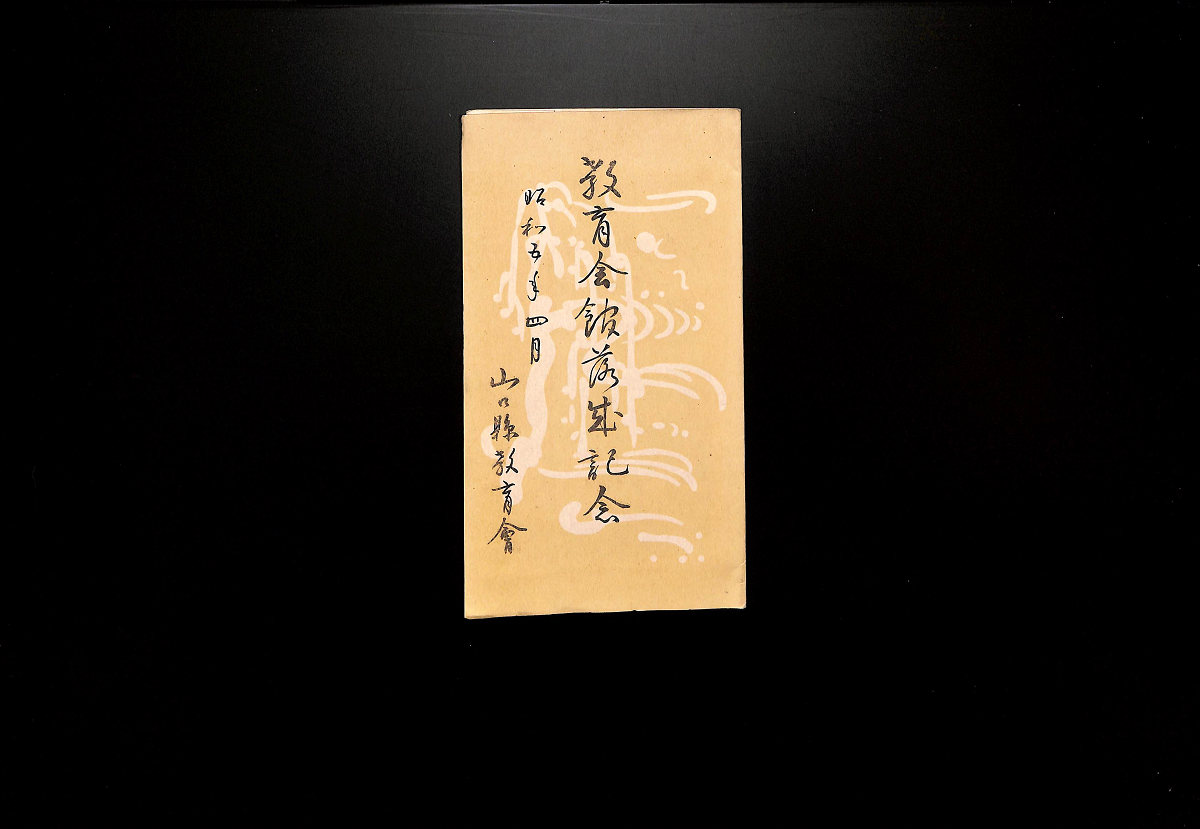 教育会館落成記念
昭和五年四月
山口縣教育會